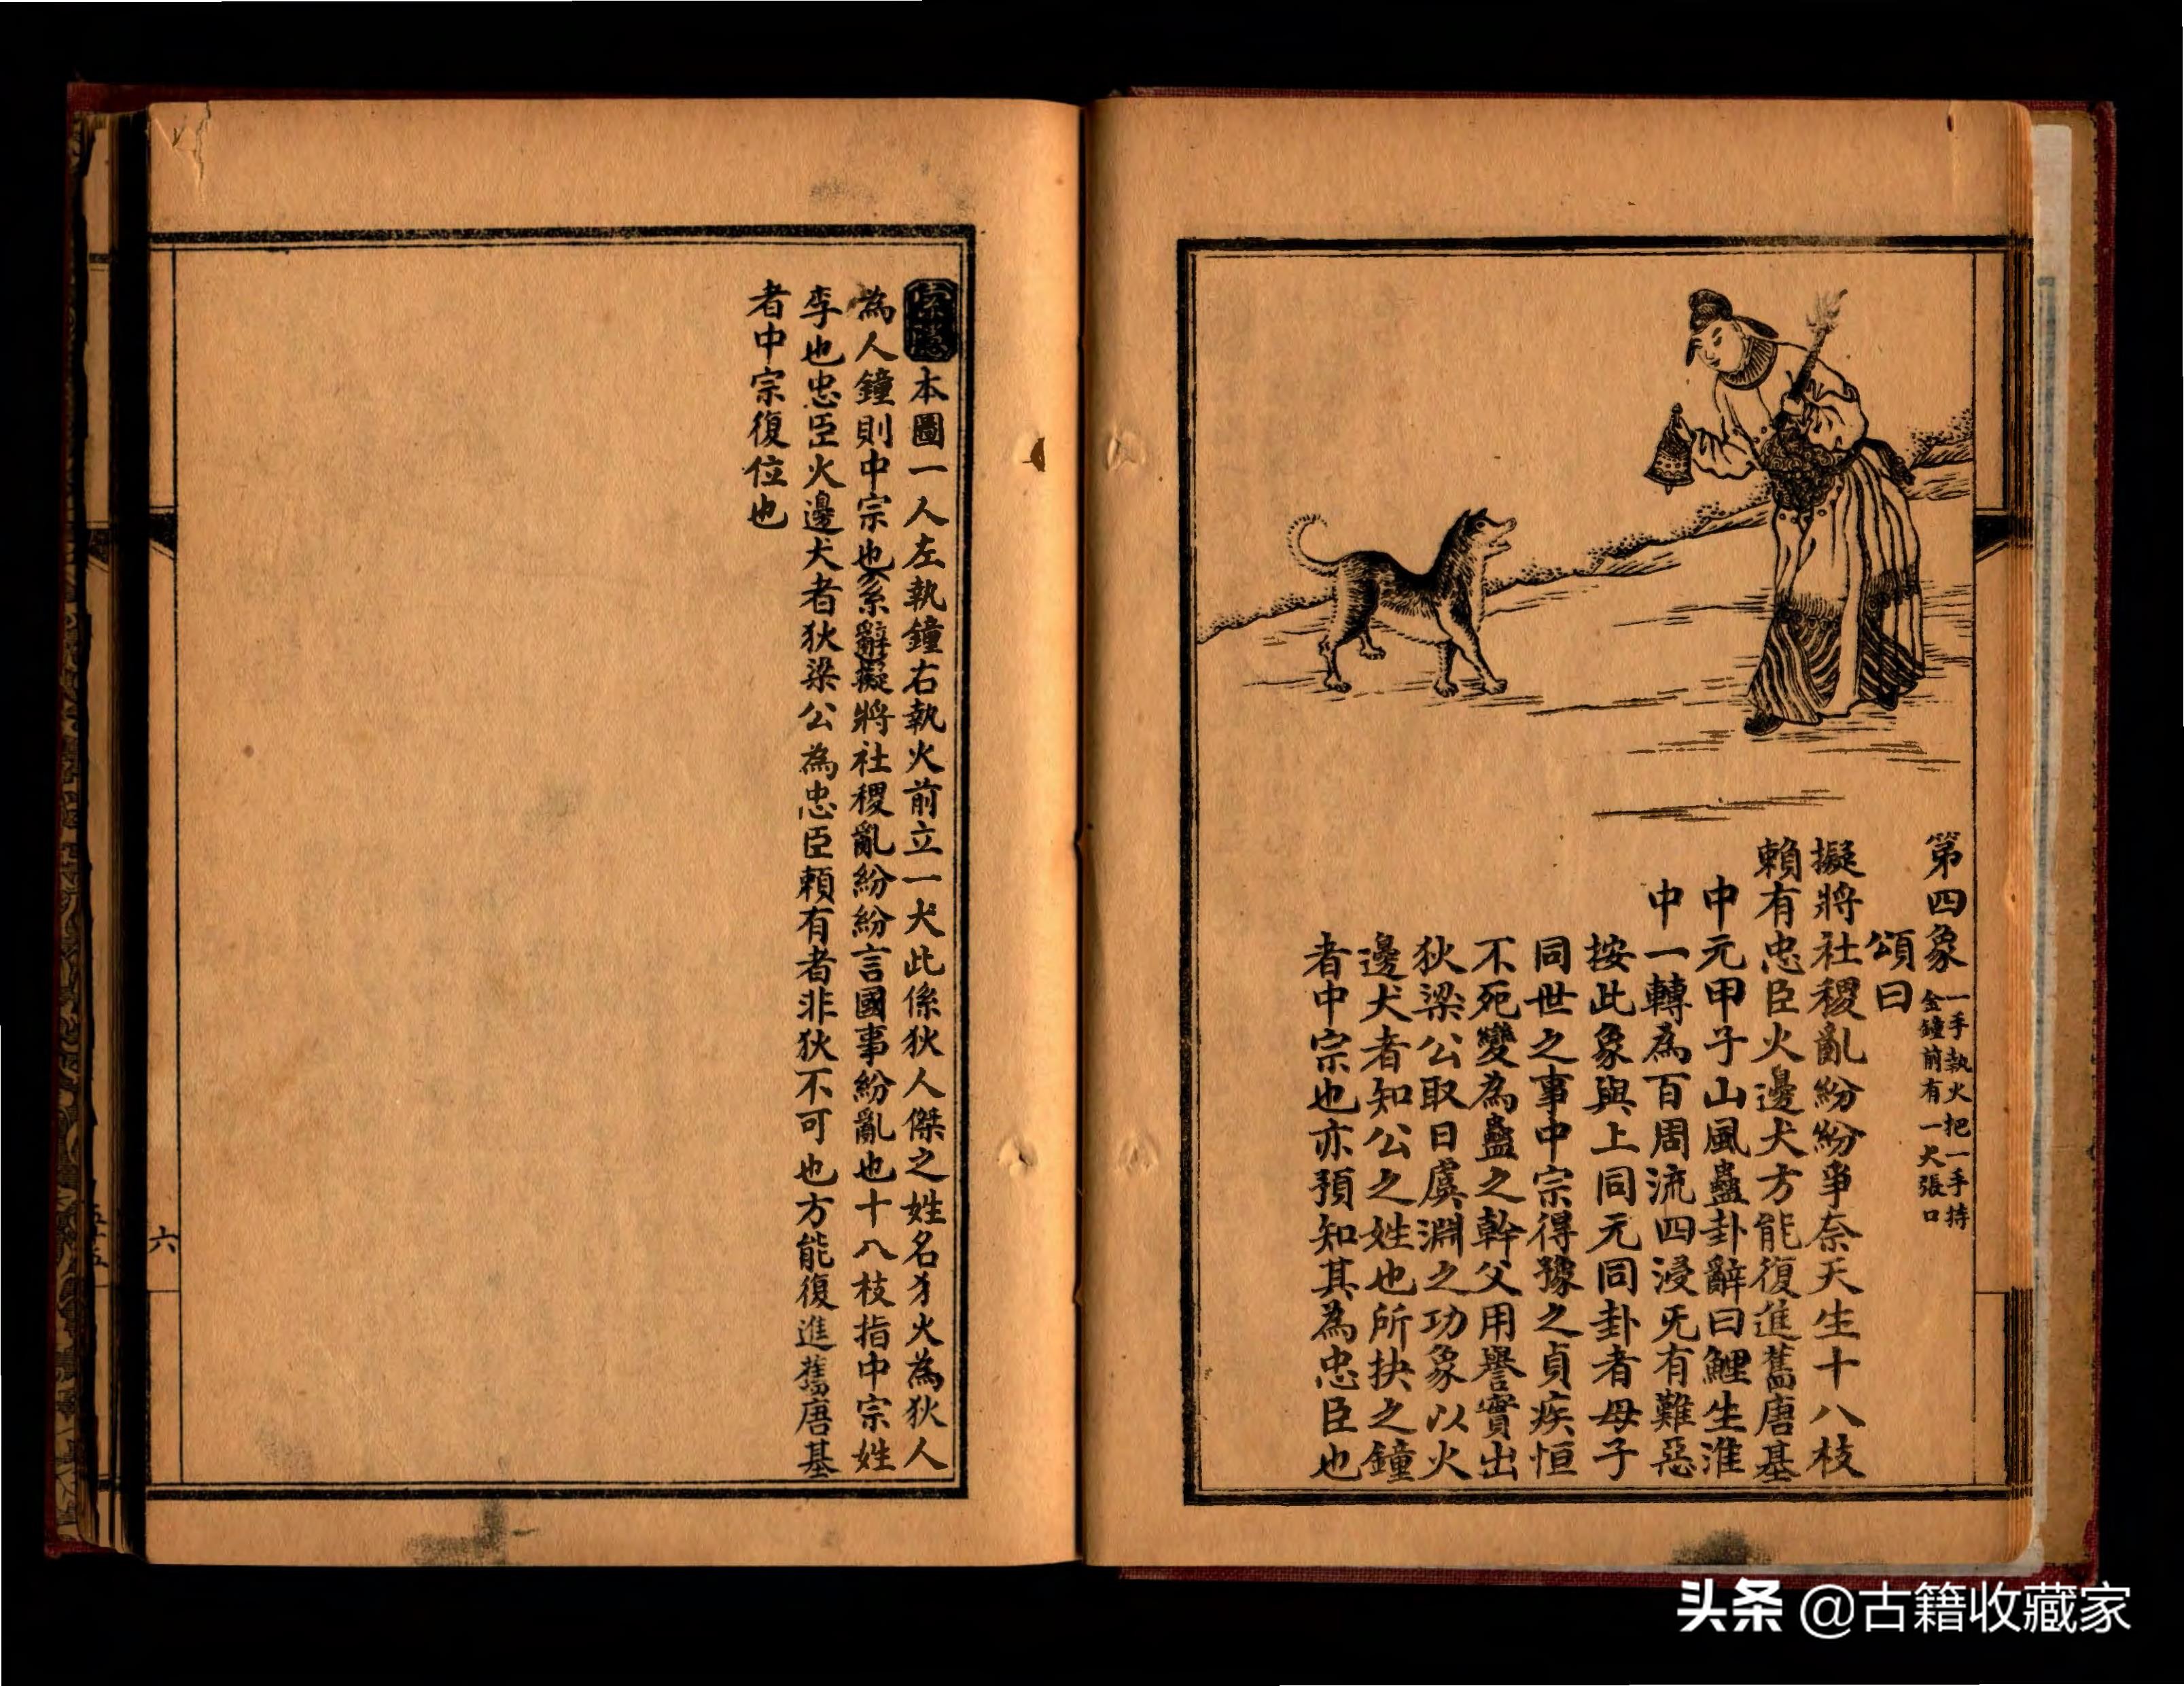 第四象
一手執火把一手持
金鐘前有一犬張口
頌曰
擬將社稷亂紛紛爭奈天生十八枝
賴有忠臣火邊犬方能復進舊唐基
中元甲子山風蠱卦辭曰鯉生淮
中一轉為百周流四浸旡有難惡
按此象與上同元同卦者母子
同世之事中宗得豫之貞疾恒
不死變為蠱之幹父用譽實出
狄梁公取日虞淵之功象以火
邊犬者知公之姓也所抉之鐘
者中宗也亦預知其為忠臣也
索隱 本圖一人左執鐘右執火前立一犬此係狄人傑之姓名犭火為狄人
為人鐘則中宗也系辭擬將社稷亂紛紛言國事紛亂也十八枝指中宗姓
李也忠臣火邊犬者狄梁公為忠臣賴有者非狄不可也方能復進舊唐基
者中宗復位也
六
头条 @古籍收藏家